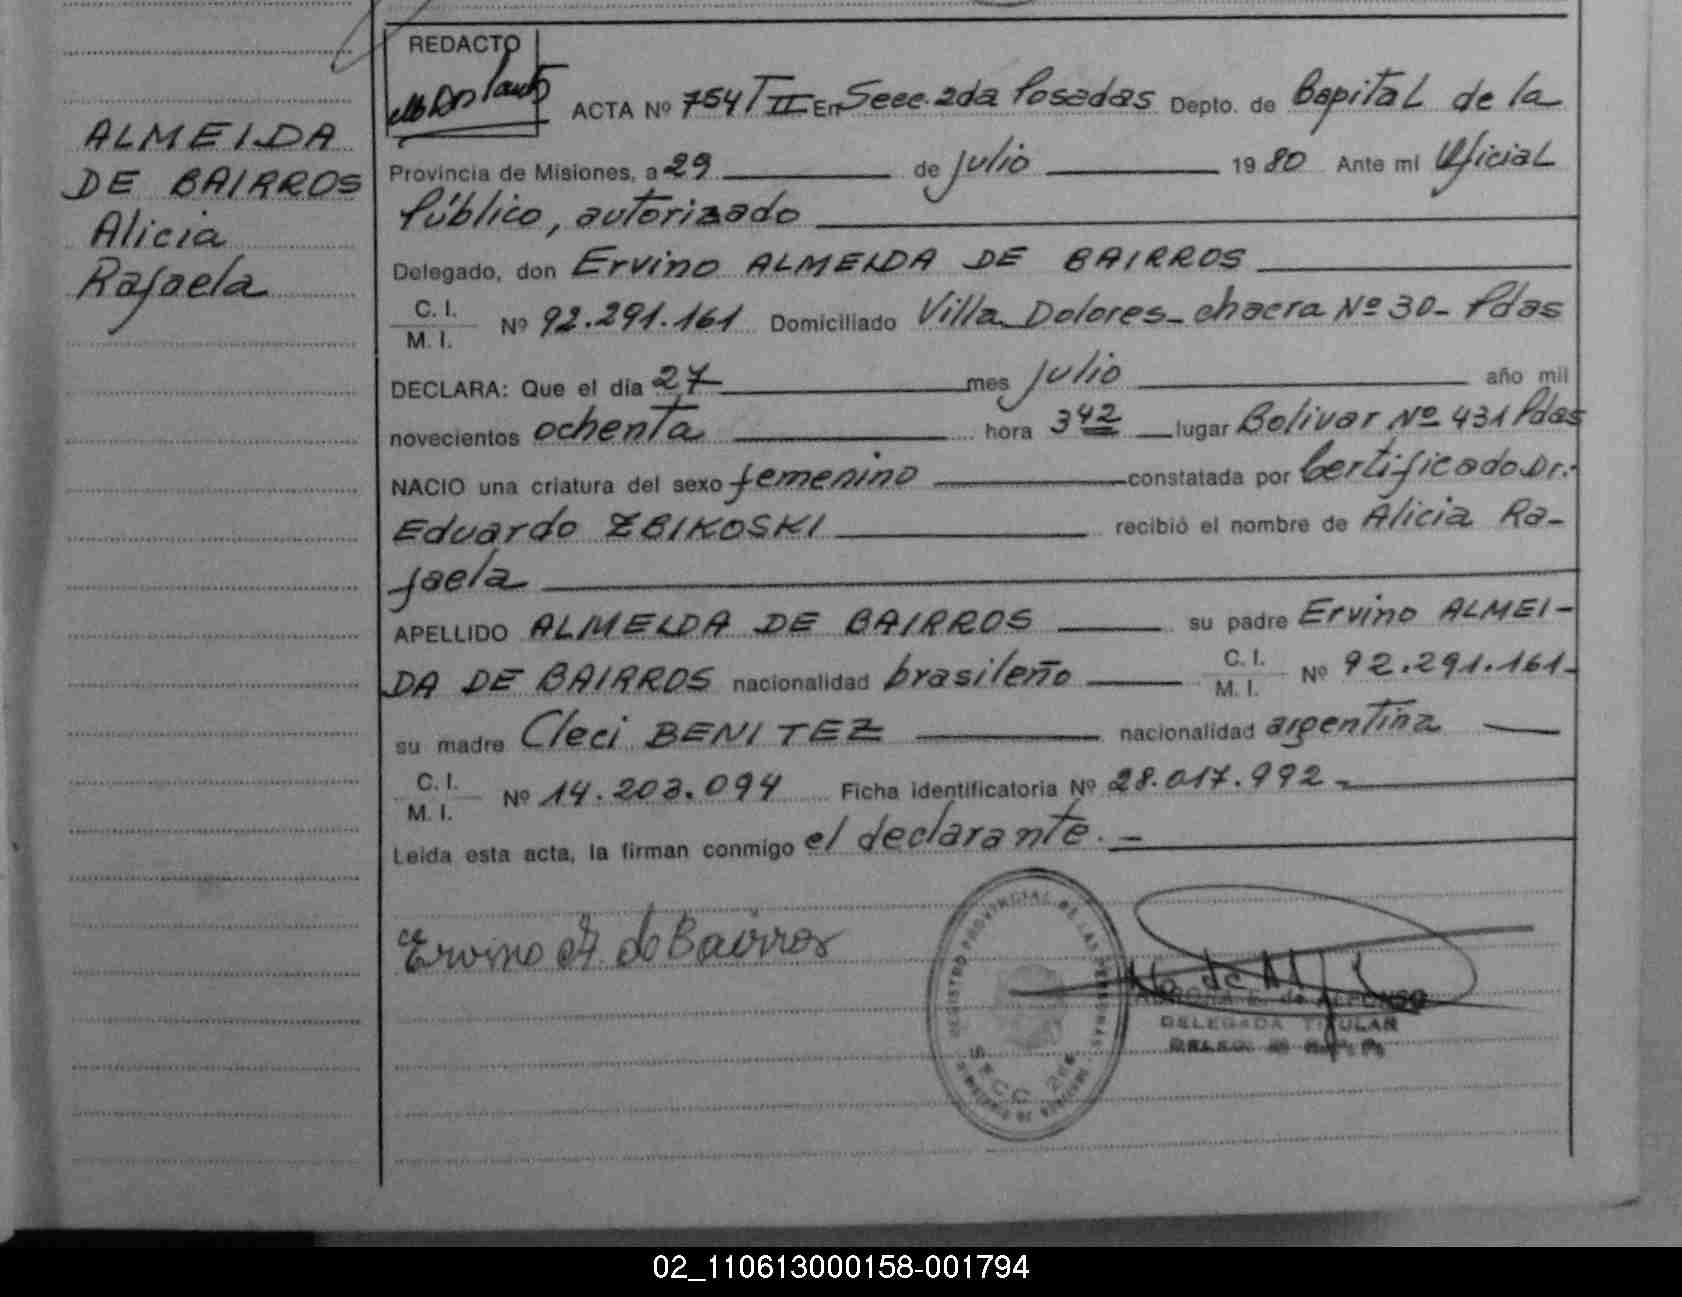 REDACTO
ALMEIDA
DE BAIRROS
Alicia
Rafaela
ACTA Nº 754 T II En Secc. 2da Posadas Depto. de Capital de la
Provincia de Misiones, a 29 de julio 1980 Ante mi Oficial
Público, autorizado
Delegado, don Ervino ALMEIDA DE BAIRROS
C. I.
M. I. Nº 92.291.161 Domiciliado Villa Dolores - chacra Nº 30 - Pdas
DECLARA: Que el día 27 mes julio año mil
novecientos ochenta hora 3 42 lugar Bolivar Nº 431 Pdas
NACIO una criatura del sexo femenino constatada por Certificado Dr.
Eduardo ZBIKOSKI recibió el nombre de Alicia Ra-
faela
APELLIDO ALMEIDA DE BAIRROS su padre Ervino ALMEI-
DA DE BAIRROS nacionalidad brasileño C. I. M. I. Nº 92.291.161-
su madre Cleci BENITEZ nacionalidad argentina
C. I.
M. I. Nº 14.203.094 Ficha identificatoria Nº 28.017.992.-
Leida esta acta, la firman conmigo el declarante.-
Ervino A. de Bairros
REGISTRO PROVINCIAL DE LAS PERSONAS
SECC 2da
DELEGADA TITULAR
02_110613000158-001794